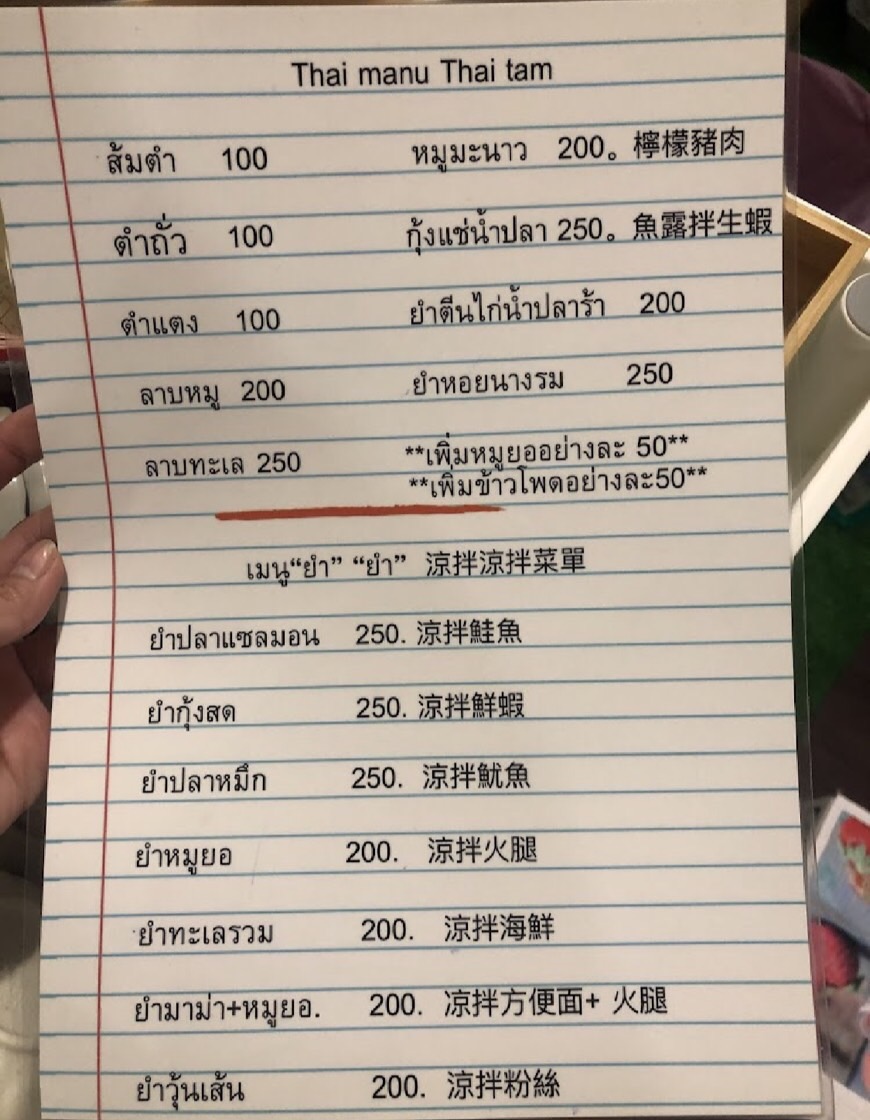 Thai manu Thai tam
ส้มตำ 100 หมูมะนาว 200。檸檬豬肉
ตำถั่ว 100 กุ้งแช่น้ำปลา 250。魚露拌生蝦
ตำแตง 100 ยำตีนไก่น้ำปลาร้า 200
ลาบหมู 200 ยำหอยนางรม 250
ลาบทะเล 250 **เพิ่มหมูยออย่างละ 50**
**เพิ่มข้าวโพดอย่างละ50**
เมนู“ยำ” “ยำ” 涼拌涼拌菜單
ยำปลาแซลมอน 250. 涼拌鮭魚
ยำกุ้งสด 250. 涼拌鮮蝦
ยำปลาหมึก 250. 涼拌魷魚
ยำหมูยอ 200. 涼拌火腿
ยำทะเลรวม 200. 涼拌海鮮
ยำมาม่า+หมูยอ. 200. 凉拌方便面+ 火腿
ยำวุ้นเส้น 200. 涼拌粉絲